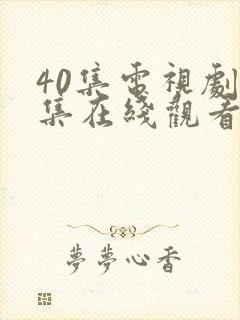 40集電視劇
集在綫觀看
夢夢心香